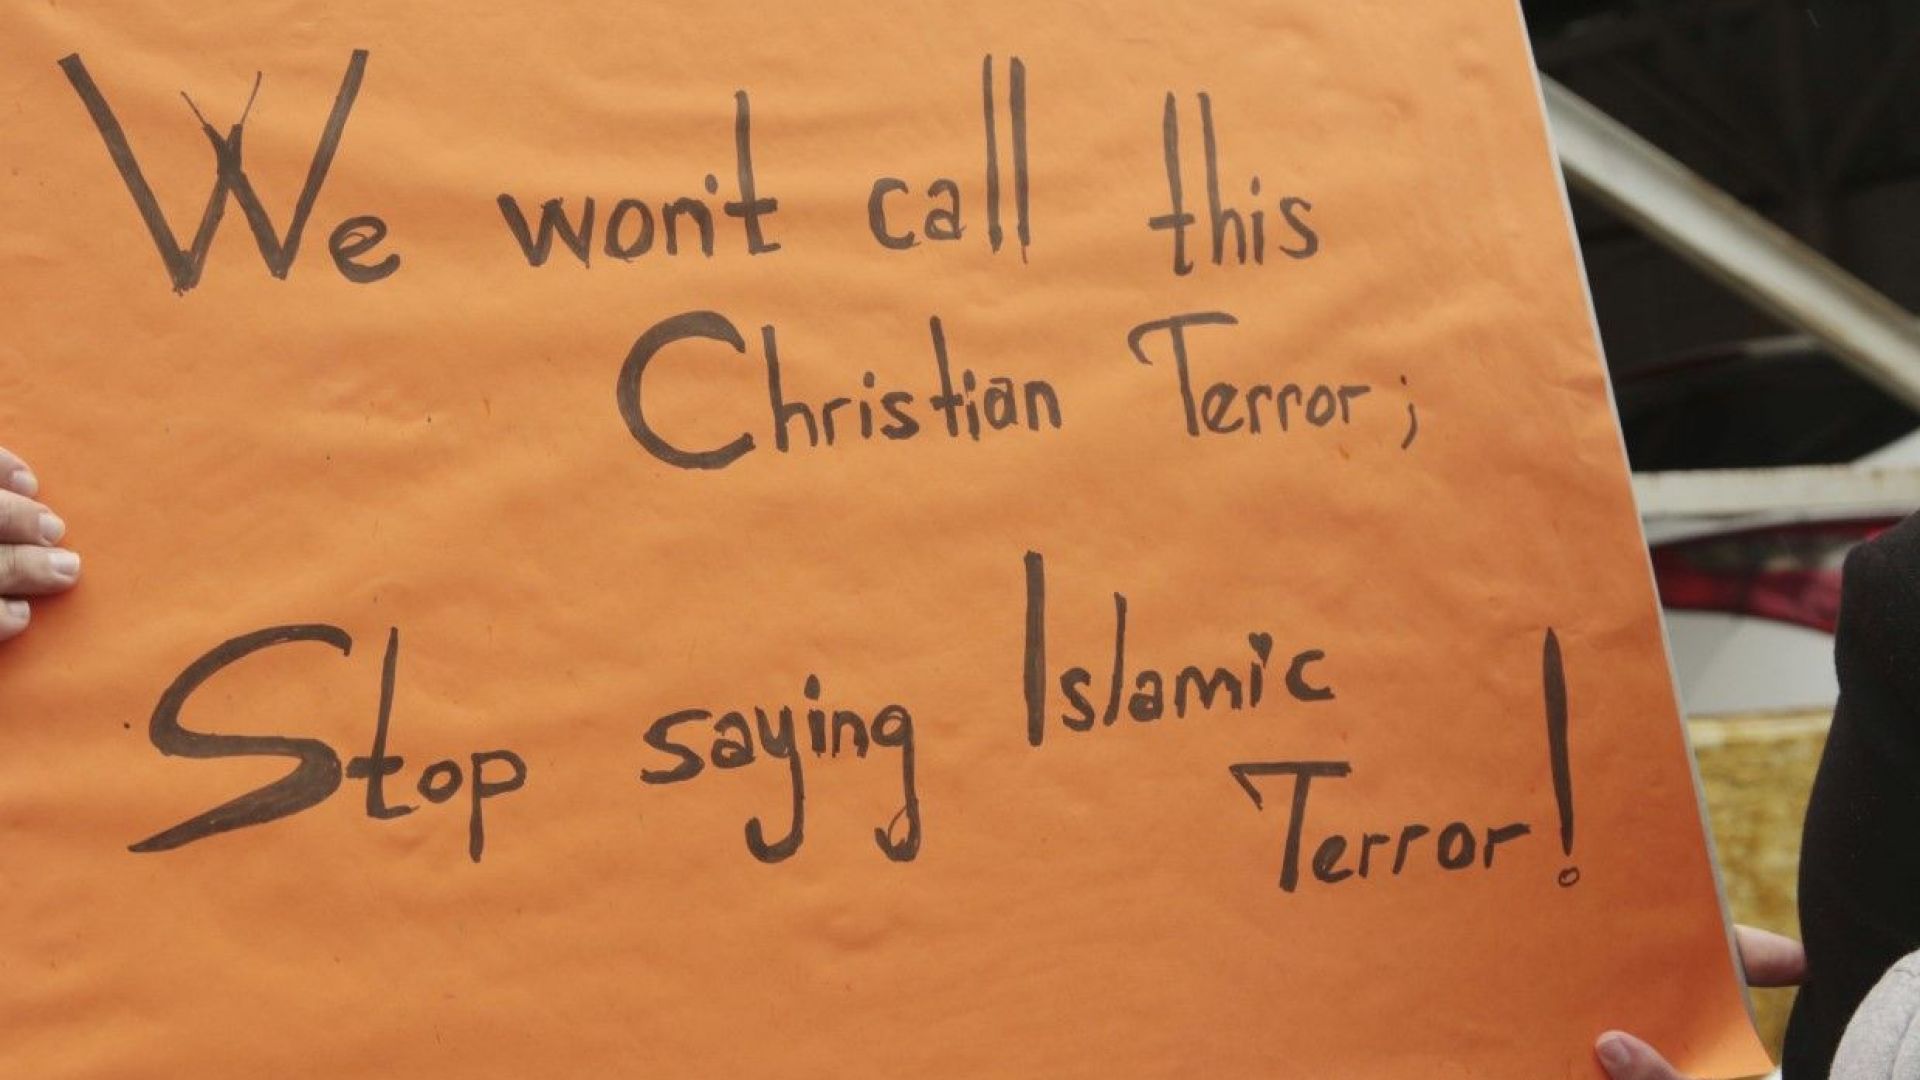 We won't call this
Christian Terror;
Stop saying Islamic
Terror!